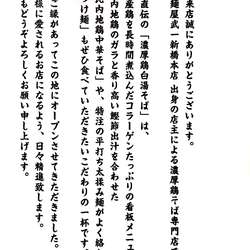 来店誠にありがとうございます。
麺屋武一新橋本店 出身の店主による濃厚鶏そば専門店
直伝の「濃厚鶏白湯そば」は、
産鶏を長時間煮込んだコラーゲンたっぷりの看板メニュ
内地鶏のガラと香り高い鰹節出汁を合わせた
内地鶏中華そば」や、特注の平打ち太揉み麺がよく絡
け麺」もぜひ食べていただきたいこだわりの一杯です
ご縁があってこの地にオープンさせてきただきました。
様に愛されるお店になるよう、日々精進致します。
もどうぞよろしくお願い申し上げます。